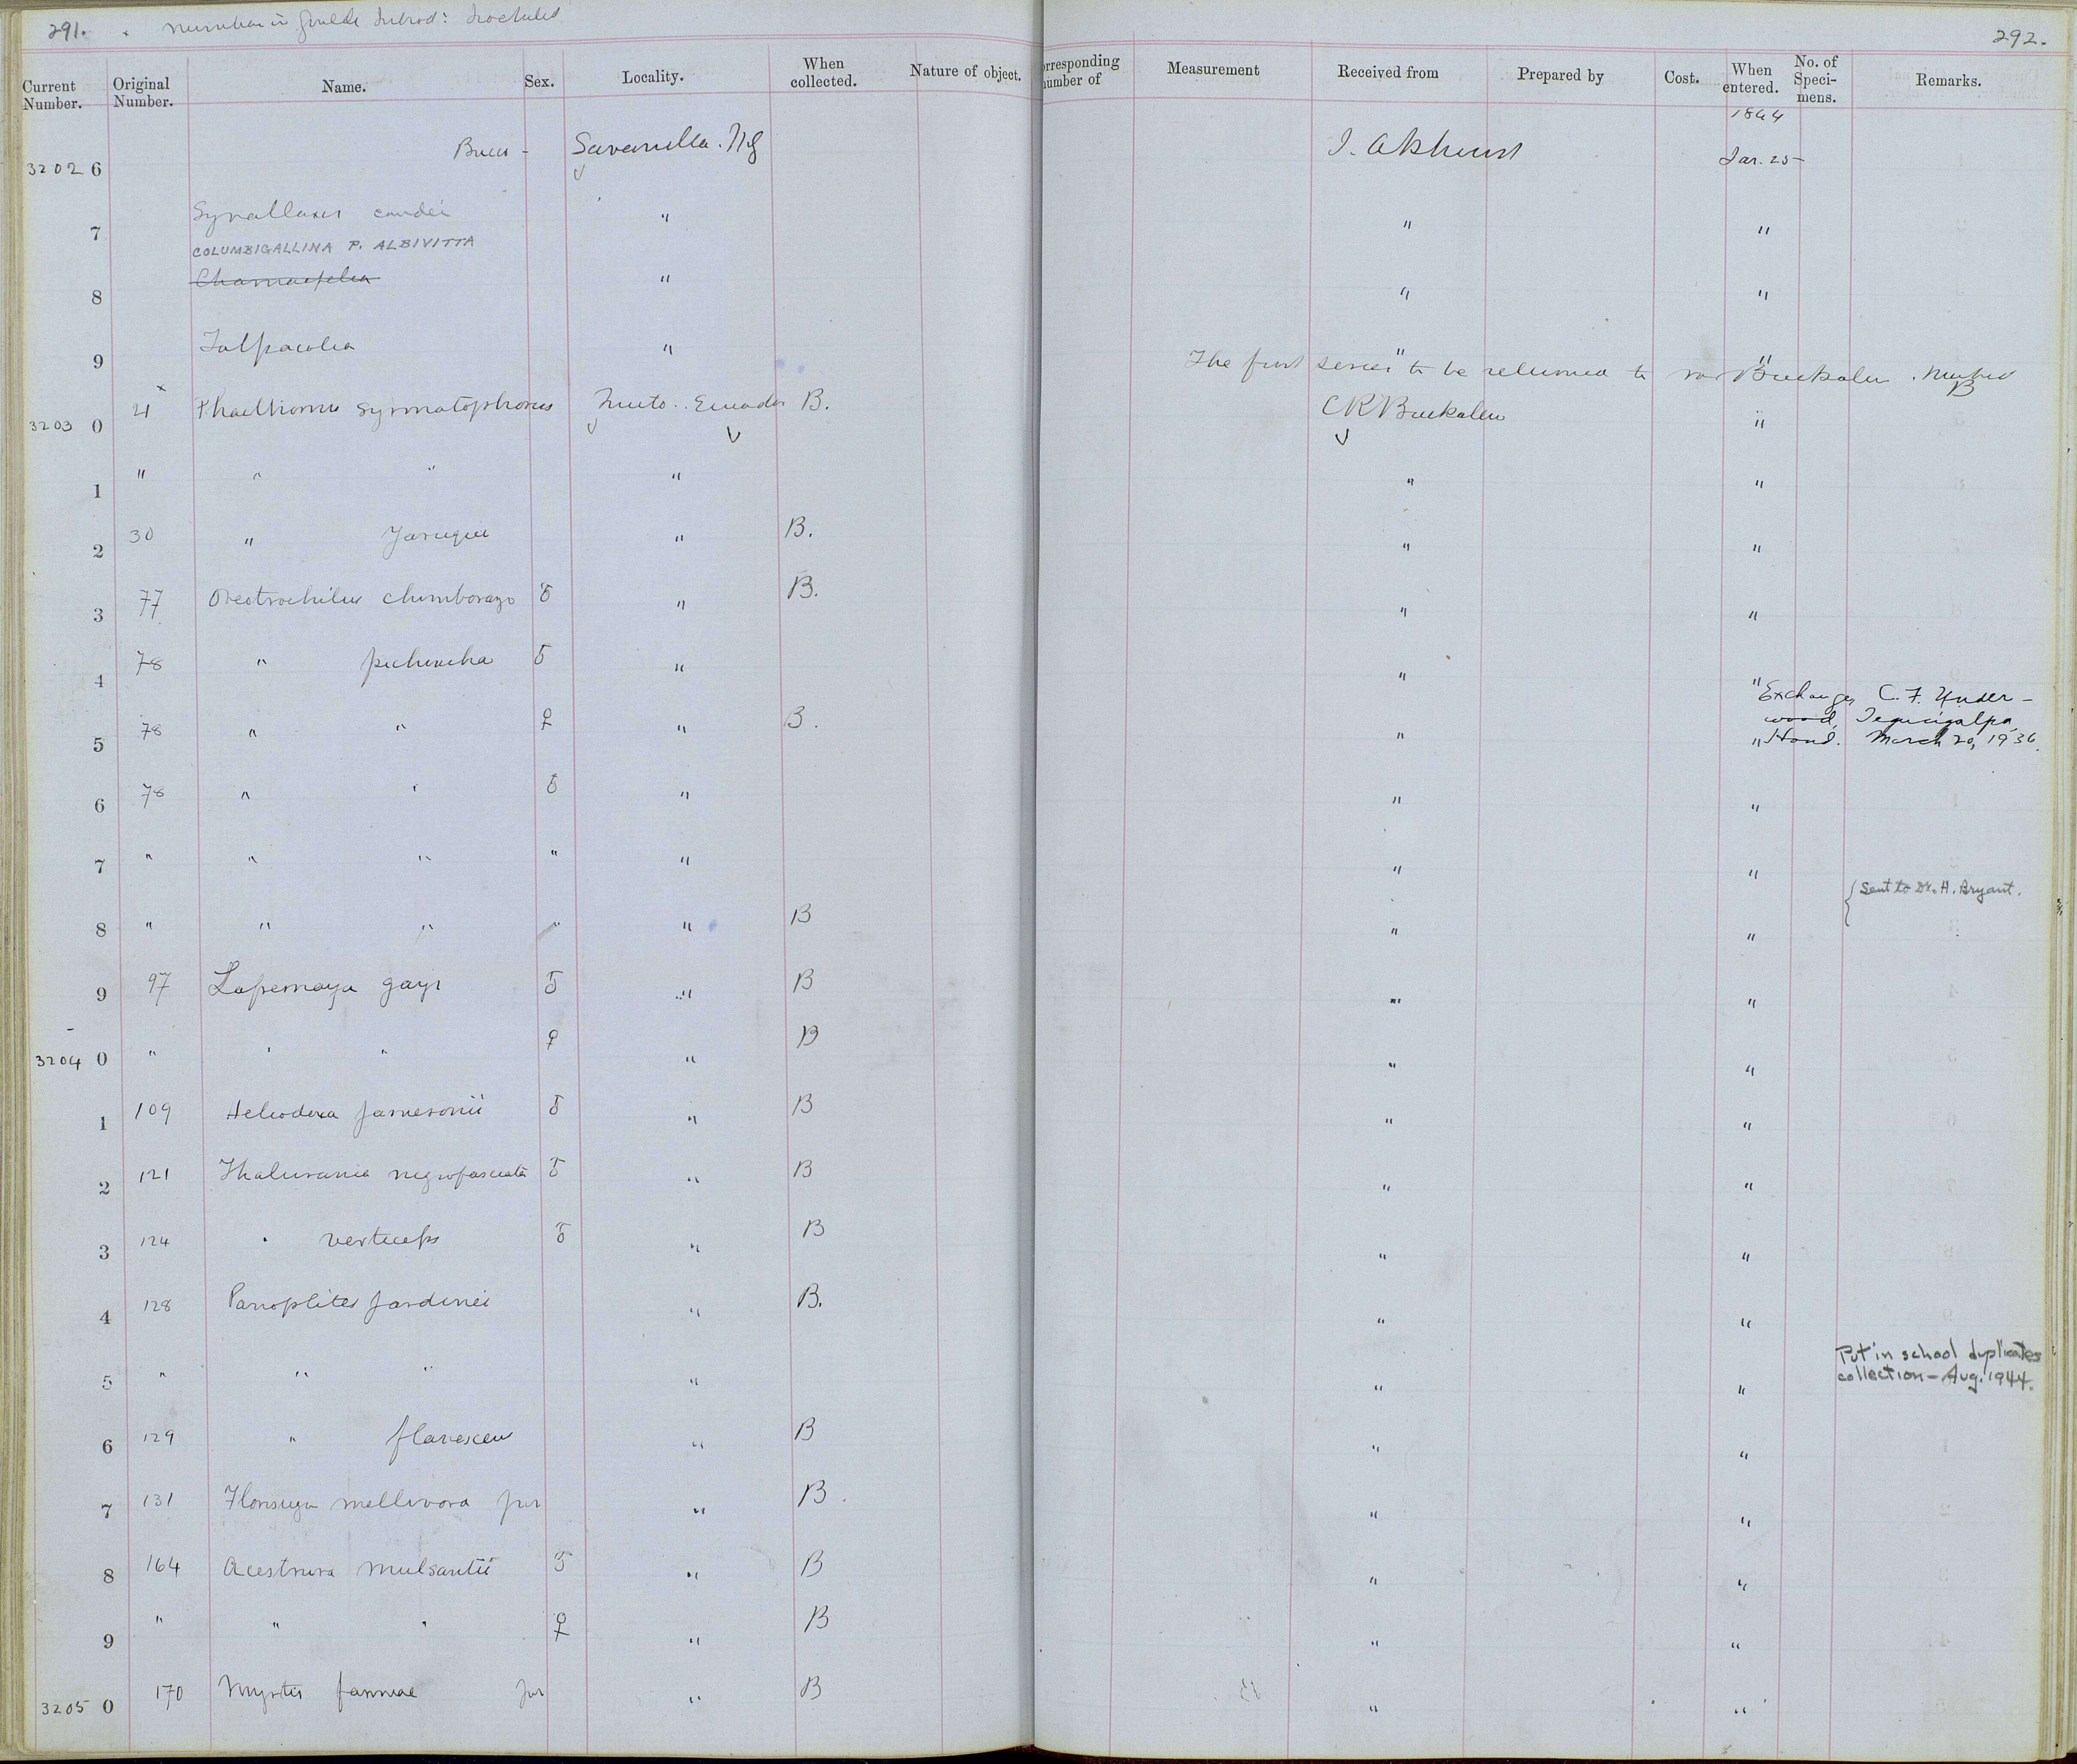 291. × number in Goulds Introd: Trochilid
292.
Current Number. Original Number. Name. Sex. Locality. When collected. Nature of object. orresponding number of Measurement Received from Prepared by Cost. When entered. No. of Speci-mens. Remarks.
1864
32026 Savanilla. N.G. J. Akhurst Jan. 25-
7 Synallaxis candei " " "
COLUMBIGALLINA P. ALBIVITTA
8 Chamaepelea " " "
9 " " "
The first series to be returned to Buckalew. marked B
32030 21 × Phaethornis syrmatophorus Quito. Ecuador B. C R Buckalew "
1 " " " " " "
2 30 " Yaruqui " B. " "
3 77 Oreotrochilus chimborazo ♂ " B. " "
4 78 " pichincha ♂ " " "
Exchange, C. F. Under-
wood, Tegucigalpa,
Hond. March 20, 1936.
5 78 " " ♀ " B. " "
6 78 " " ♂ " " "
7 " " " " " " "
{ Sent to Dr. H. Bryant.
8 " " " " " B " "
9 97 Lafresnaya gayi ♂ " B " "
32040 " " " ♀ " B " "
1 109 Heliodoxa jamesonii ♂ " B " "
2 121 Thalurania nigrofasciata ♂ " B " "
3 124 " verticeps ♂ " B " "
4 128 Panoplites jardinei " B. " "
Put in school duplicates
collection - Aug. 1944.
5 " " " " " "
6 129 " flavescens " B " "
7 131 Florisuga mellivora jur " B. " "
8 164 Acestrura mulsantii ♂ " B " "
9 " " " ♀ " B " "
32050 170 Myrtis fanniae jur " B " "